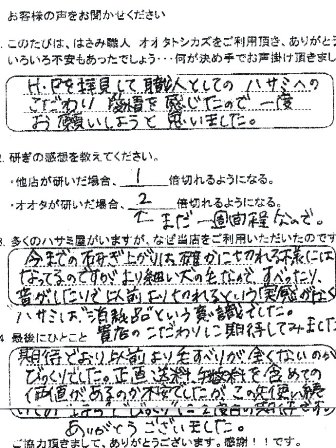 お客様の声をお聞かせください
.このたびは、はさみ職人 オオタトシカズをご利用頂き、ありがとう
いろいろ不安もあったでしょう・・・何が決め手でお声掛け頂きまし
H.Pを拝見して職人としてのハサミへの
こだわり 愛情を感じたので一度
お願いしようと思いました。
2. 研ぎの感想を教えてください。
・他店が研いだ場合、 1 倍切れるようになる。
・オオタが研いだ場合、 2 倍切れるようになる。
↑まだ一週間程なので。
3. 多くのハサミ屋がいますが、なぜ当店をご利用いただいたのです
今までの研ぎ上がりは確かに切れる様には
なってるのですがより細い犬の毛なんで、すべったり、
音がしたりで以前より切れるという実感がなく
ハサミは、消耗品という意識でした。
貴店のこだわりに期待してみました
4 最後にひとこと
期待どおり以前より毛すべりが全くないのが
びっくりでした。正直送料、手数料を含めての
価値があるのか不安でしたが、この先使い続
ありがとうございました。
ご協力頂きまして、ありがとうございます。感謝!!です。